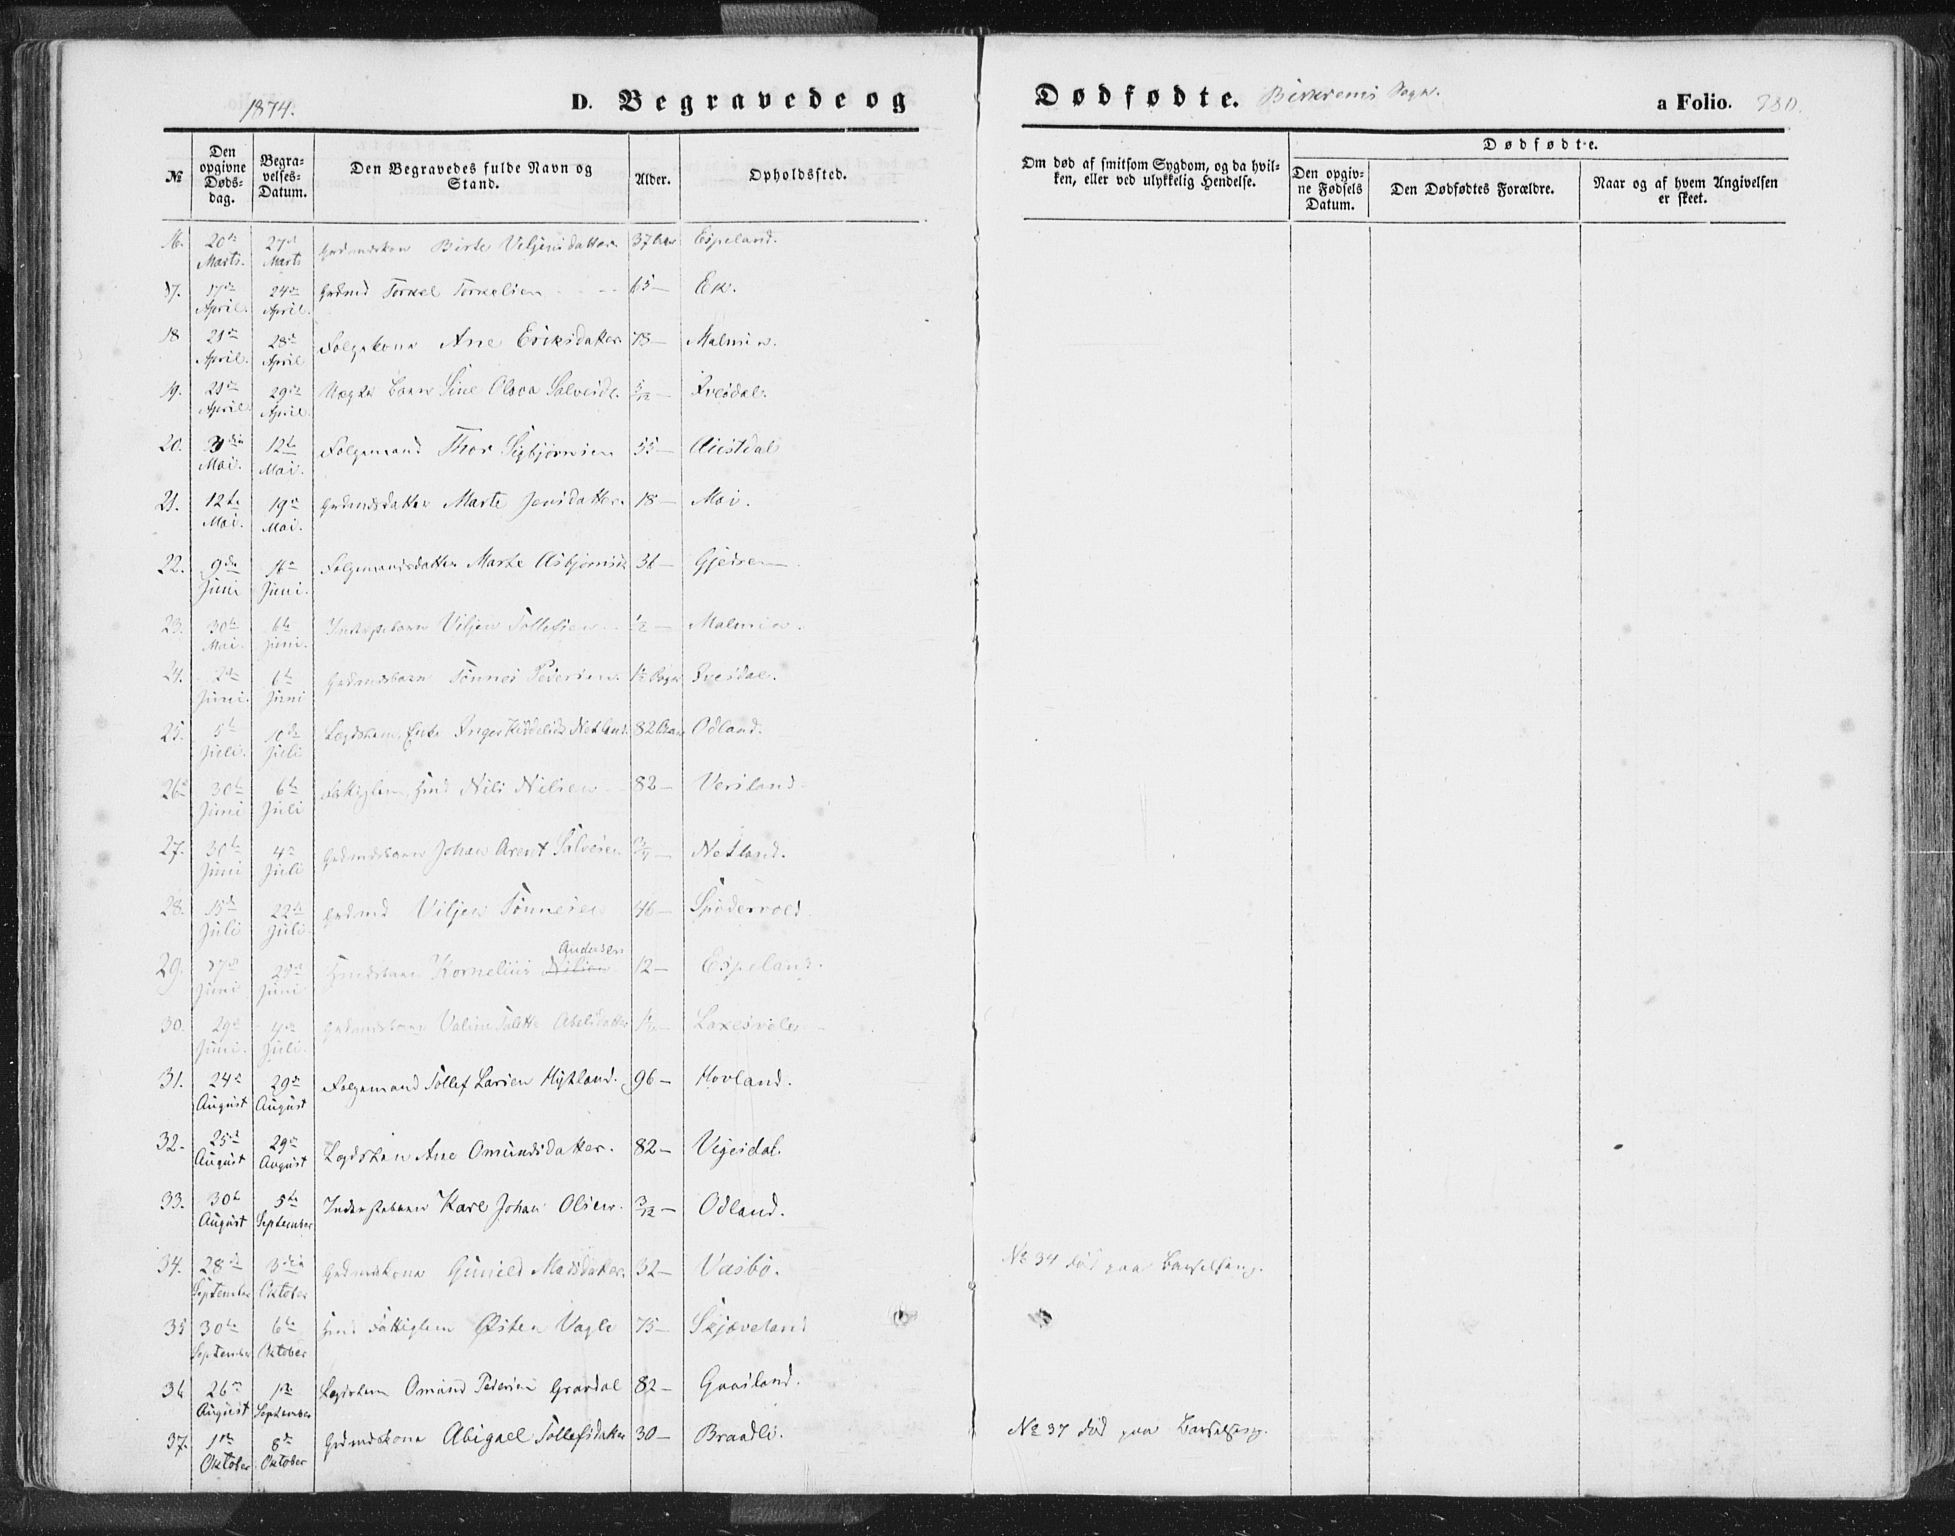 1874.
D. Begravede og Dødfødte. Birkrems Sogn. a Folio. 280.
№ | Den opgivne Døds-dag. | Begra-velses-Datum. | Den Begravedes fulde Navn og Stand. | Alder. | Opholdssted. | Om død af smitsom Sygdom, og da hvil-ken, eller ved ulykkelig Hendelse. | Dødfødte.
Den opgiv-ne Fødsels Datum. | Den Dødfødtes Forældre. | Naar og af hvem Angivelsen er skeet.
16. 20de Marts. 27de Marts Grdmdskone Birte Veljensdatter 37 Aar Espeland.
17. 17de April. 24de April. Grdmd Torkel Torkelsen 65 — Ek.
18 21de April. 28de April Følgekone Ane Eriksdatter 78 — Malmin.
19. 21de April 29de April. Barn Sine Olova Salvesdt. 5/12 — Evesdal.
20. 3die Mai. 12te Mai. Følgemand Thor Sigbjørnsen 55 — Austdal
21. 12te Mai. 19de Mai. Grdmdsdatter Marte Jensdatter. 18 — Moi.
22. 9de Juni 16de Juni. Følgemandsdatter Marte Asbjørnsdt 36 — Gjedrem
23. 30te Mai. 6te Juni. Inderstbarn Viljen Tollefsen ½ — Malmin.
24. 2den Juni. 6te Juni Grdmdsbarn Tønnes Pedersen Evesdal.
25. 5te Juli. 10de Juli Lægdslem, Enke Inger Netland. 82 Aar Odland.
26. 30te Juni 6te Juli Fattiglem, Hmd Nils Nilsen 82 — Versland.
27. 30te Juni 4de Juli Grdmdsbarn Johan Arent Salvesen ¾ — Netland.
28. 15de Juli 22de Juli. Grdmd Viljen Tønnesen 46 — Spødervold
29. 17de Juni 29de Juni Hmdsbarn Kornelius Nilsen Andersen 12 — Espeland.
30. 29de Juni. 4de Juli. Grdmdsbarn Valine Talette Abelsdatter Laxesvele
31. 24de August 29de August Følgemand Tollef Larsen Hytland. 96 — Hovland.
32. 25de August 29de August Lægdslem Ane Omundsdatter. 82 — Vegesdal.
33. 30te August 5te September Inderstebarn Karl Johan Olsen. 3/12 — Odland.
34. 28de September 3die Oktober Grdmdskone Gunild Madsdatter. 32 — Vasbø. № 34 død paa Barselseng.
35 30te September 6te Oktober Hmd Fattiglem Østen Vagle 75 — Skjæveland
36 26de August 1ste September Lægdslem Omund Pedersen Gravdal 82 — Gaasland.
37. 1ste Oktober 8de Oktober Grdmdskone Abigael Tollefsdatter 30 — Braadli. № 37 død paa Barselseng.